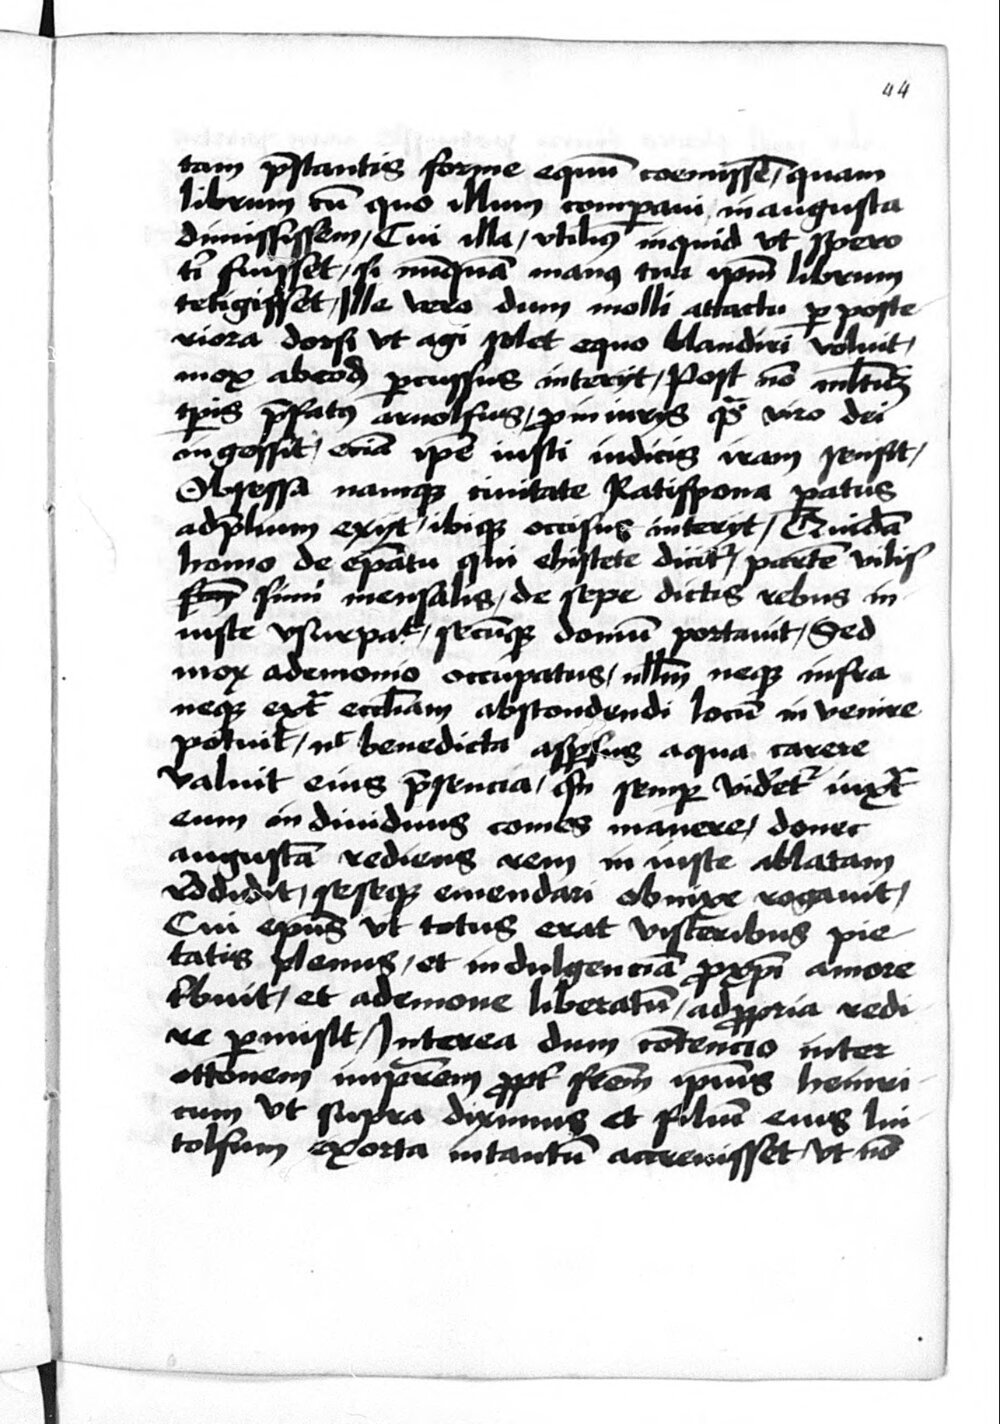 44
tam p̄stantis forme equū coemissē / quam
librum cū quo illum comparaui / in augusta
dimississem / Cui illa / vtiliꝯ inquid vt spero
tī fuisset / si nūquā manꝯ tua ip̄m librum
tetigisset / Ille vero dum molli attactu ꝑ poste
riora dorsi vt agi solet equo blandiri voluit /
mox abeod̄ ꝑcussus interijt / Post nō ml̄tū
tp̄is p̄fatꝯ arnolfus / ꝓ iniurijs q̄s viro dei
ingessit / eciā ip̄e iusti iudicis iram sensit /
Obsessa namqꝫ ciuitate Ratispona ꝑatus
adp̄lium exijt / ibiqꝫ occisus interijt / Quidā
homo de ep̄atu qui ehistete dicit᷑ / partē vilis
simi mensalis / de sepe dictis rebus in
iuste vsurpat / secūqꝫ domū portauit / Sed
mox ademonio occupatus / nll̄m neqꝫ infra
neqꝫ ext̄ eccl̄iam abscondendi locū in venire
potuit / nc̄ benedicta aspersus aqua carere
valuit eius p̄sencia / qn̄ semꝑ videt᷑ iuxt̄
eum indiuiduus comes manere / donec
augustā rediens rem in iuste ablatam
reddidit / seseqꝫ emendari obnixe rogauit /
Cui ep̄us vt totus erat visceribus pie
tatis plenus / et indulgenciā ꝓ xp̄i amore
t̄buit / et ademone liberatū / adꝓpria redi
re ꝑmisit / Interea dum cōtencio inter
ottonem imꝑ̄rem ꝓpt̄ fr̄em ip̄ius heinri
cum vt supra diximus et filiū eius lui
tolfum exorta intantū accreuisset / vt nō